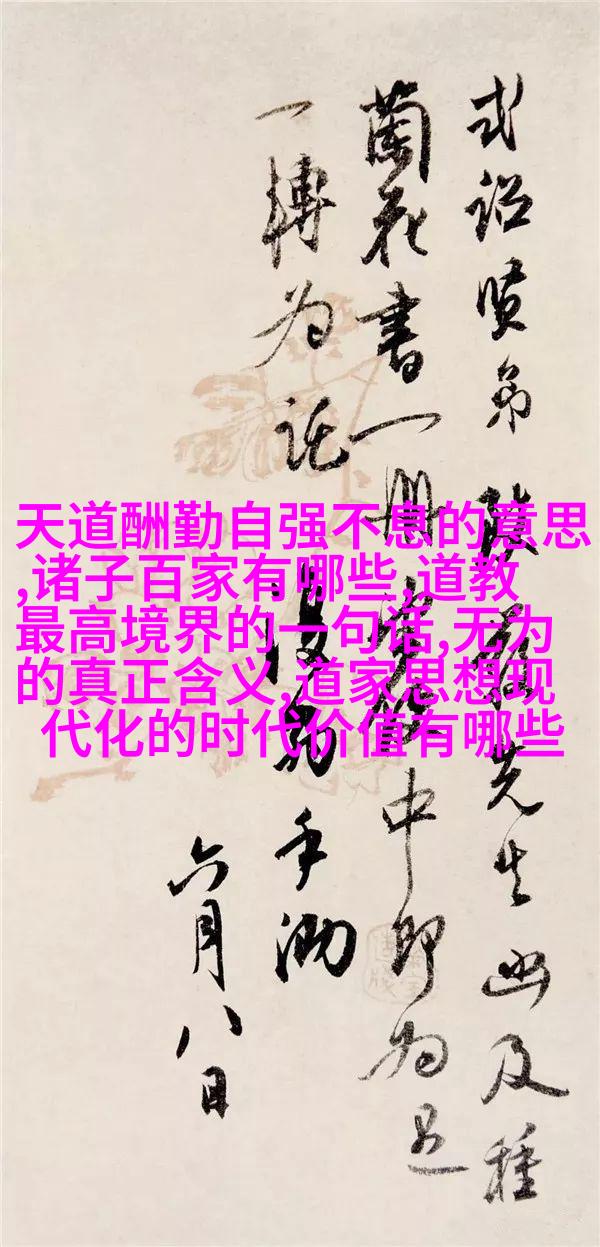 式诏贤弟 先生函及種
蘭花書一冊 中即为
一轉为託 手泐
六月八日
天道酬勤自强不息的意思
,诸子百家有哪些,道教
最高境界的一句话,无为
的真正含义,道家思想现
代化的时代价值有哪些